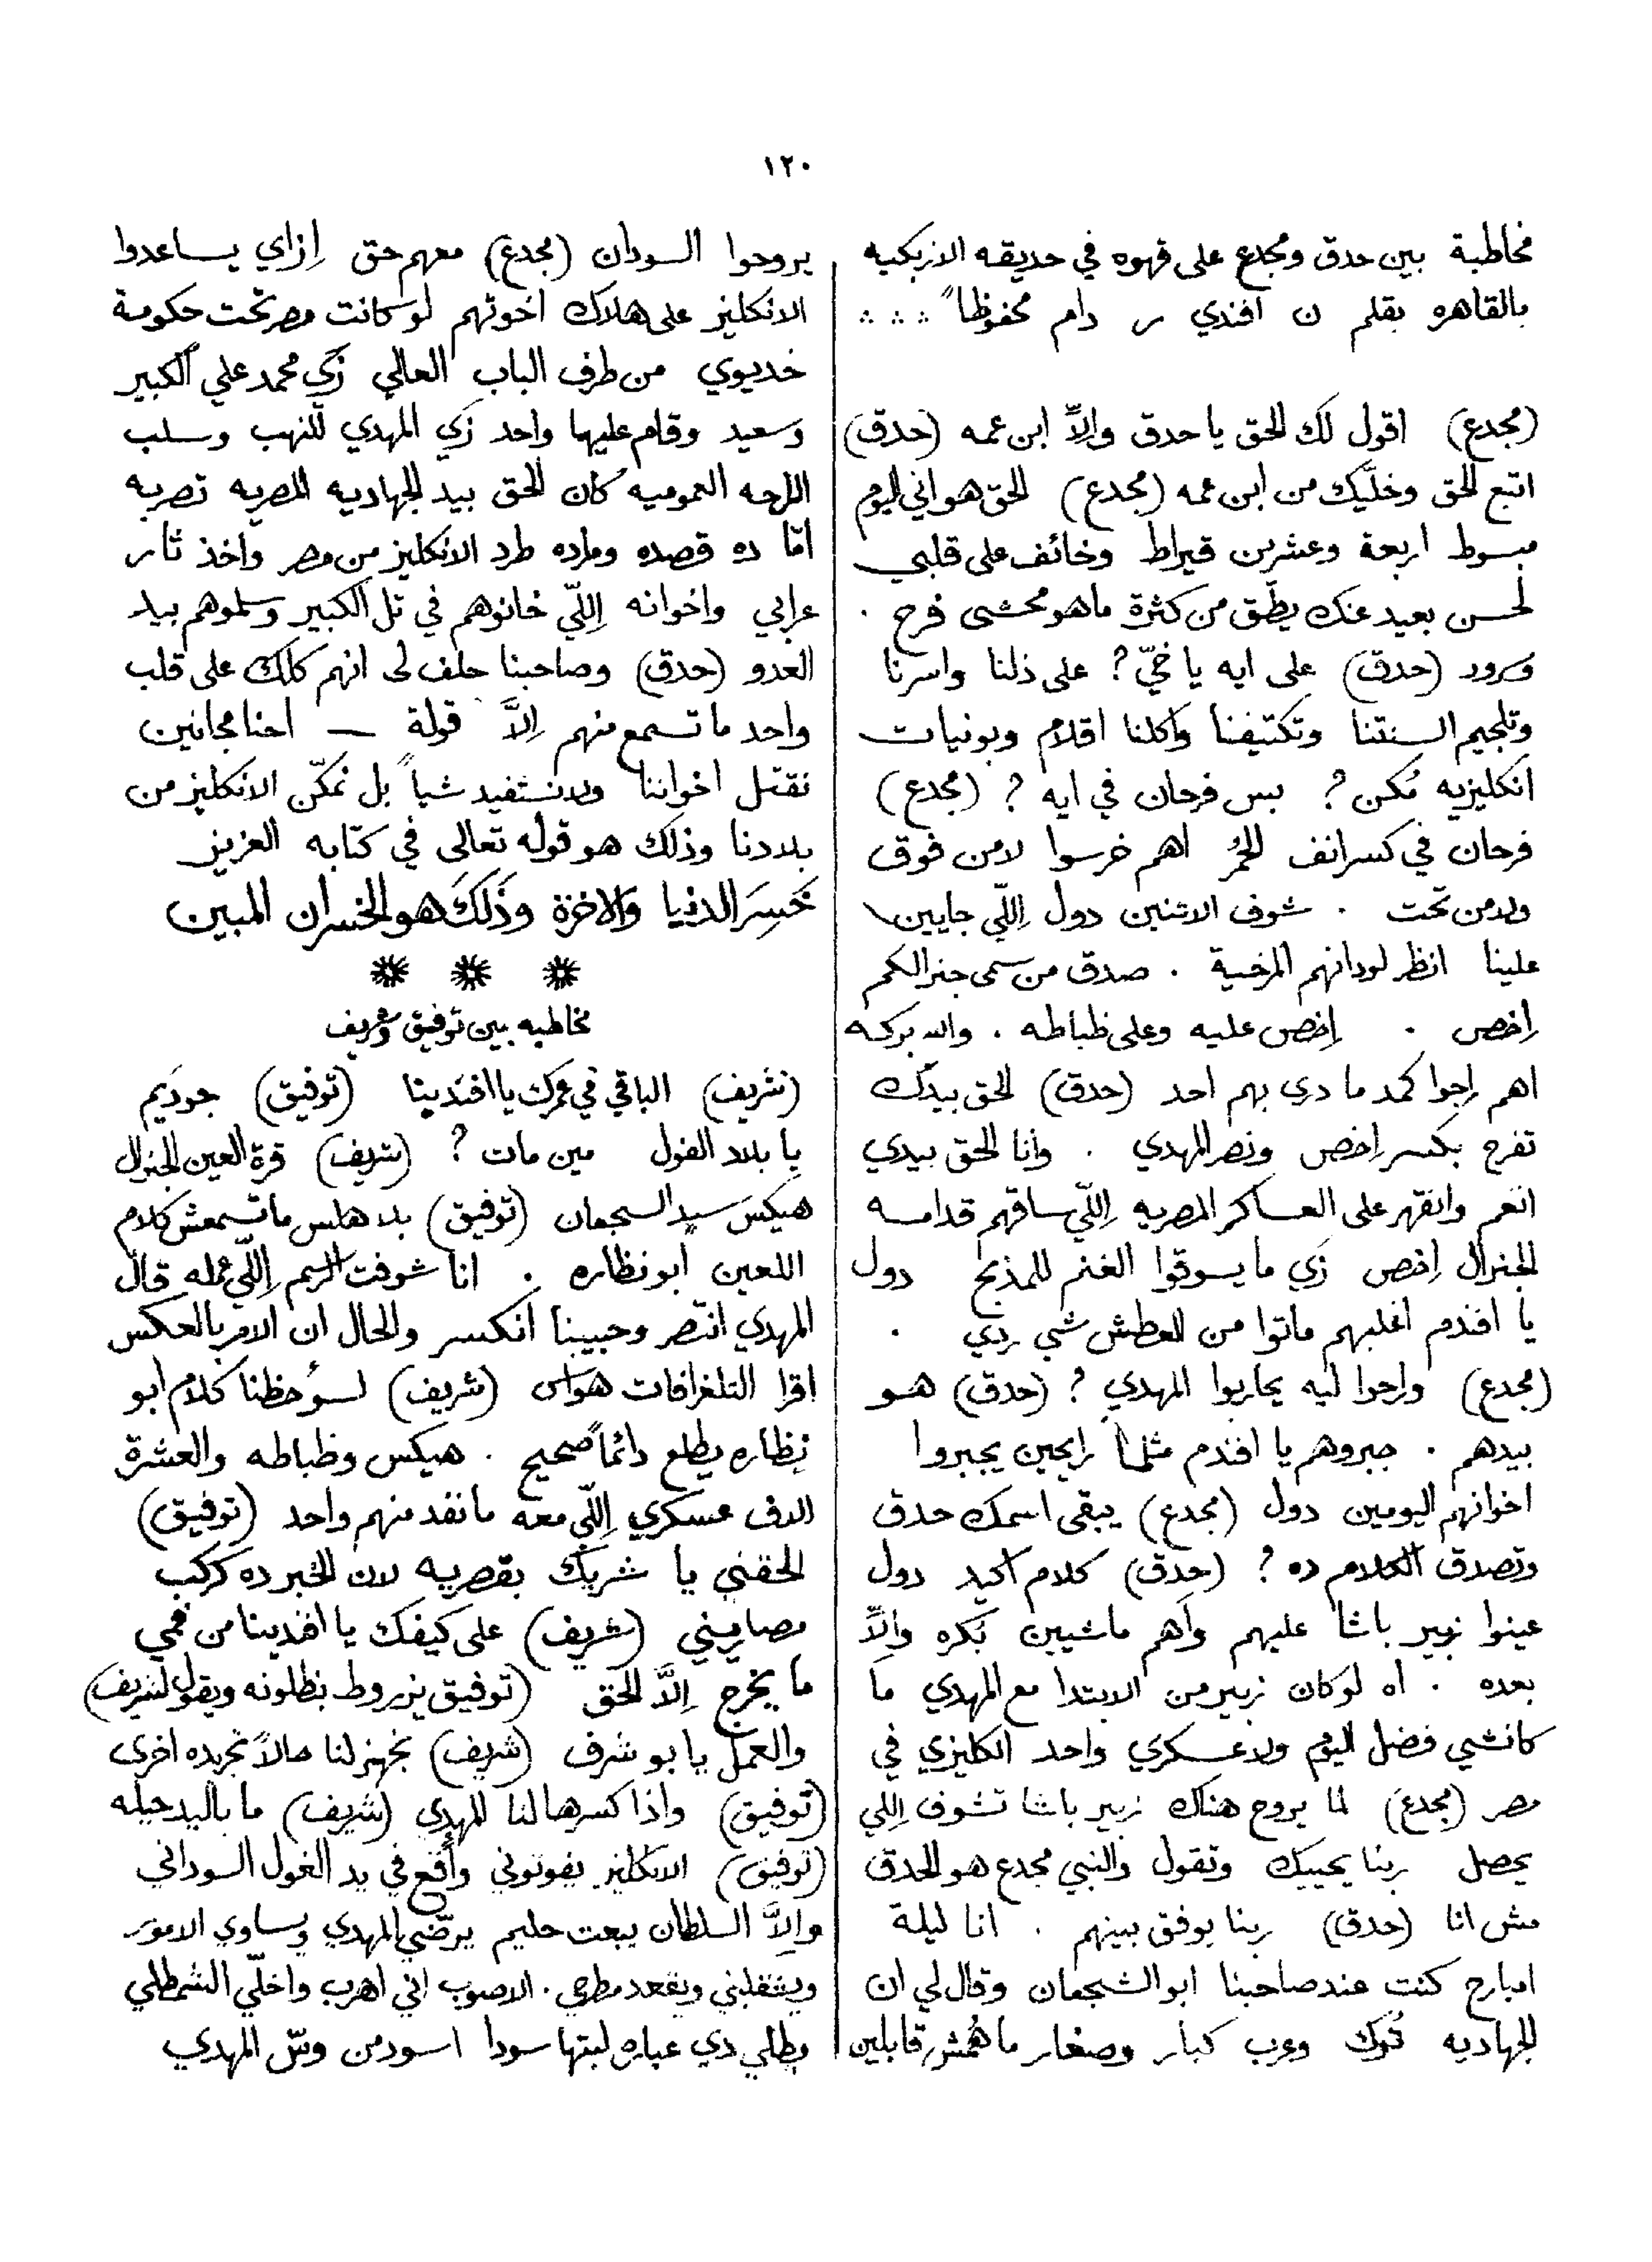 ١٢٠
مخاطبة بين حدق ومجدع على قهوه في حديقه الازبكيه
بالقاهره بقلم ن افندي ر دام محفوظاً ∴ ∴
(مجدع) اقول لك الحق يا حدق والاّ ابن عمه (حدق)
اتبع الحق وخلّيك من ابن عمه (مجدع) الحق هو اني اليوم
مبسوط اربعة وعشرين قيراط وخائف على قلبي
لحسن بعيد عنك يطّق من كثرة ما هو محشى فرح .
وسرور (حدق) على ايه يا خيّ ? على ذلنا واسرنا
وتلجيم السنتنا وتكتيفنا واكلنا اقلام وبونيات
انكليزيه مُكن ? بس فرحان في ايه ? (مجدع)
فرحان في كسر انف الحُمُر اهم خرسوا لا من فوق
ولا من تحت . شوف الاتنين دول اِللّي جايين
علينا انظر لودانهم المرخية . صدق من سمى جنرالكم
اِخص . اِخص عليه وعلى ظباطه . والله بركه
اهم راحوا كمد ما دري بهم احد (حدق) الحق بيدّك
تفرح بكسر اِخص ونصر المهدي . وانا الحق بيدي
انغم وانقهر على العساكر المصريه اِللّي ساقهم قدامه
الجنرال اِخص زَي ما يسوقوا الغنم للمذبح دول
يا افندم اغلبهم ماتوا من العطش شي ردي .
(مجدع) وراحوا ليه يحاربوا المهدي ? (حدق) هو
بيدهم . جبروهم يا افندم مثلما رايحين يجبروا
اخوانهم اليومين دول (مجدع) يبقى اسمك حدق
وتصدق الكلام ده ? (حدق) كلام اكيد دول
عينوا زبير باشا عليهم واهم ماشيين بُكره والاِّ
بعده . اه لو كان زبير من الابتدا مع المهدي ما
كانشي فضل اليوم ولا عسكري واحد انكليزي في
مصر (مجدع) لما يروح هناك زبير باشا تشوف اِللي
يحصل ربنا يحييك وتقول والنبي مجدع هو الحدق
مش انا (حدق) ربنا يوفق بينهم . انا ليلة
امبارح كنت عند صاحبنا ابو الشجعان وقال لي ان
الجهاديه تُوك وعرب كبار وصغار ما هُمش قابلين
يروحوا السودان (مجدع) معهم حق اِزاي يساعدوا
الانكليز على هلاك اخوتهم لو كانت مصر تحت حكومة
خديوي من طرف الباب العالي زَي محمد علي الكبير
وسعيد وقام عليها واحد زي المهدي للنهب وسلب
الراحه العموميه كان الحق بيد الجهاديه المصريه تضربه
امّا ده قصده ومراده طرد الانكليز من مصر واخذ ثار
عرابي واخوانه اِللّي خانوهم في تل الكبير وسلموهم بيد
العدو (حدق) وصاحبنا حلف لي انهم كلك على قلب
واحد ما تسمع منهم اِلاَّ قولة — احنا مجانين
نقتل اخواننا ولا نستفيد شياً بل نمكّن الانكليز من
بلادنا وذلك هو قوله تعالى في كتابه العزيز
خَسِرَ الدنيا والاخرة وذَلكَ هو الخسران المبين
✷ ✷ ✷
مخاطبه بين توفيق وشريف
(شريف) الباقي في عمرك يا افندينا (توفيق) جوديم
يا بلاد الفول مين مات ? (شريف) قرة العين الجنرال
هيكس سيد الشجعان (توفيق) بلاهلس ما تسمعش كلام
اللعين ابو نظاره . انا شوفت الرسم اِللّي عمله قال
المهدي انتصر وحبيبنا انكسر والحال ان الامر بالعكس
اقرا التلغرافات هواس (شريف) لسؤ حظنا كلام ابو
نظاره يطلع دائماً صحيح . هيكس وظباطه والعشرة
الاف عسكري اِللّي معه ما نفد منهم واحد (توفيق)
الحقني يا شريك بقصريه لان الخبر ده كركب
مصاريني (شريف) على كيفك يا افندينا من فمي
ما يخرج اِلاَّ الحق (توفيق يزروط بنطلونه ويقول لشريف)
والعمل يا بو شرف (شريف) نجهز لنا حالاً تجريده اخرى
(توفيق) واذا كسرها لنا المهدي (شريف) ما باليد حيله
(توفيق) الانكليز يفوتوني واقع في يد الغول السوداني
والاَّ السلطان يبعت حليم يرضّي المهدي ويساوي الامور
ويشقلبني ويقعد مطرحي . الاصوب اني اهرب واخلّي الشمطلي
مطلي دي عباره لبتها سودا اسود من وش المهدي